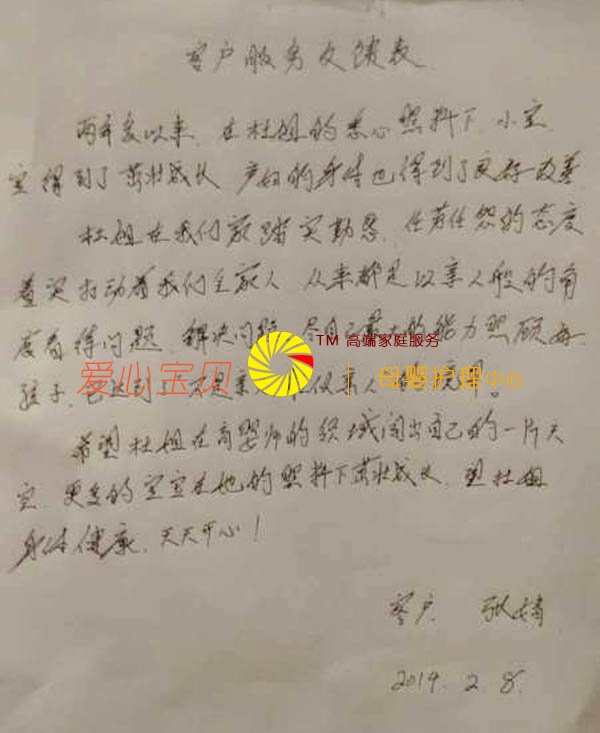 客户服务反馈表
两年多以来、在杜姐的悉心照料下、小宝
宝得到了茁壮成长 产妇的身体也得到了良好改善
杜姐在我们家踏实勤恳、任劳任怨的态度
着实打动着我们全家人 从来都是以亲人般的角
度看待问题、解决问题、尽自己最大的能力照顾每
TM 高端家庭服务
爱心宝贝
母婴护理中心
孩子、已达到 不是亲人 亲人
希望杜姐在高婴师的领域闯出自己的一片天
空、更多的宝宝在她的照料下茁壮成长、望杜姐
身体健康、天天开心！
客户 张婧
2019.2.8